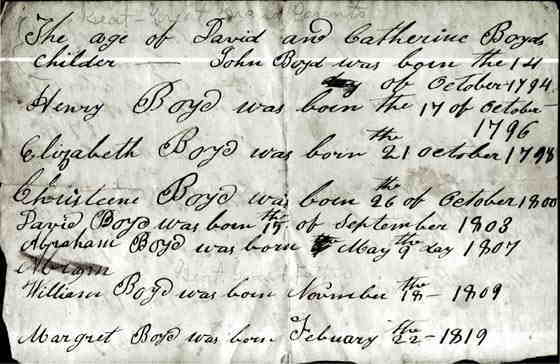 Great-Great Grand Parents
The age of David and Catherine Boyds
Childer — John Boyd was born the 14
day of October 1794
Henry Boyd was born the 17 of October
1796
Elizabeth Boyd was born the 21 october 1798
Christeene Boyd was born the 26 of October 1800
David Boyd was born the 15 of September 1803
Abraham Boyd was born May the 9 day 1807
William Boyd was born November the 18 - 1809
Margret Boyd was born Febuary the 22 - 1819